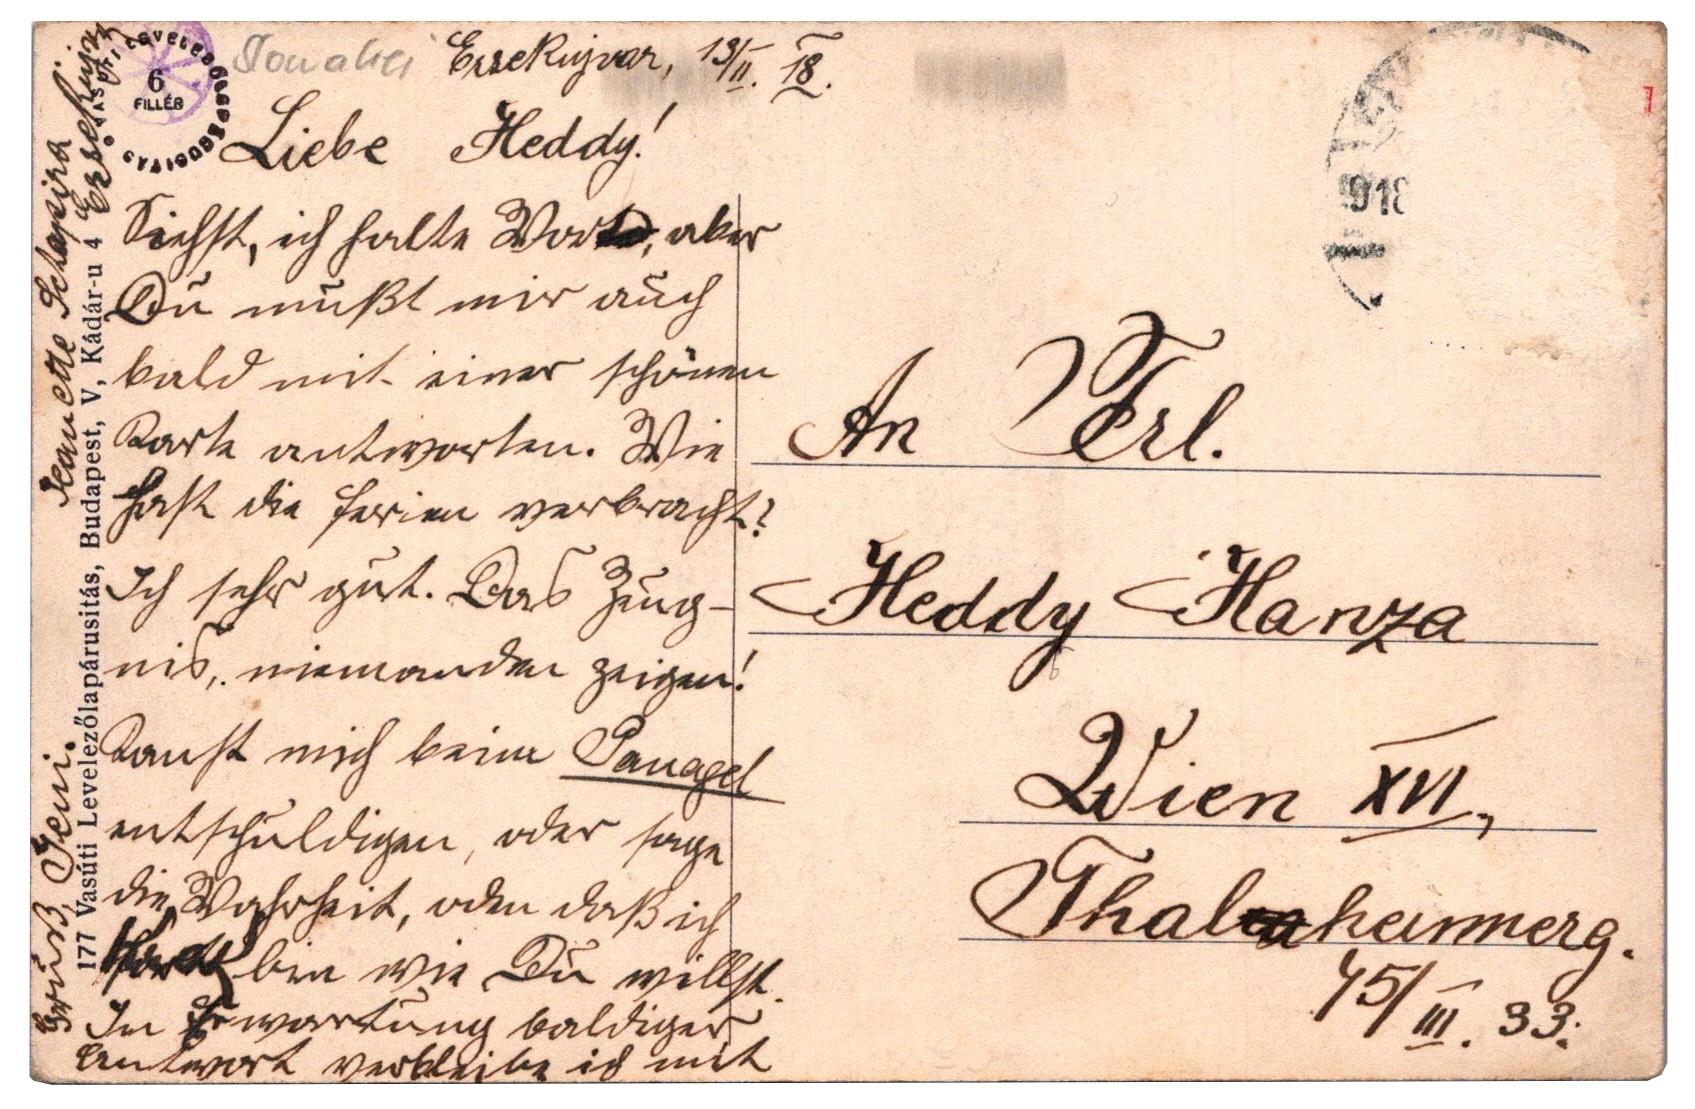 6
FILLÉR
Ersekujvar, 13/II. 18.
Liebe Heddy!
Siehst, ich halte Wort, aber
Du mußt mir auch
bald mit einer schönen
Karte antworten. Wie
hast die Ferien verbracht?
Ich sehr gut. Das Zeug-
nis, niemanden zeigen!
Kannst mich beim Panagel
entschuldigen, oder sage
die Wahrheit, oder daß ich
bin wie Du willst.
In Erwartung baldiger
Antwort verbleibe ich mit
Gruß, Jeni.
Jeanette Schapira
Ersekujvar
177 Vasúti Levelezőlapárusitás, Budapest, V, Kádár-u 4
918
1
An Frl.
Heddy Hanza
Wien XVI,
Thalheimerg.
45/III. 33.